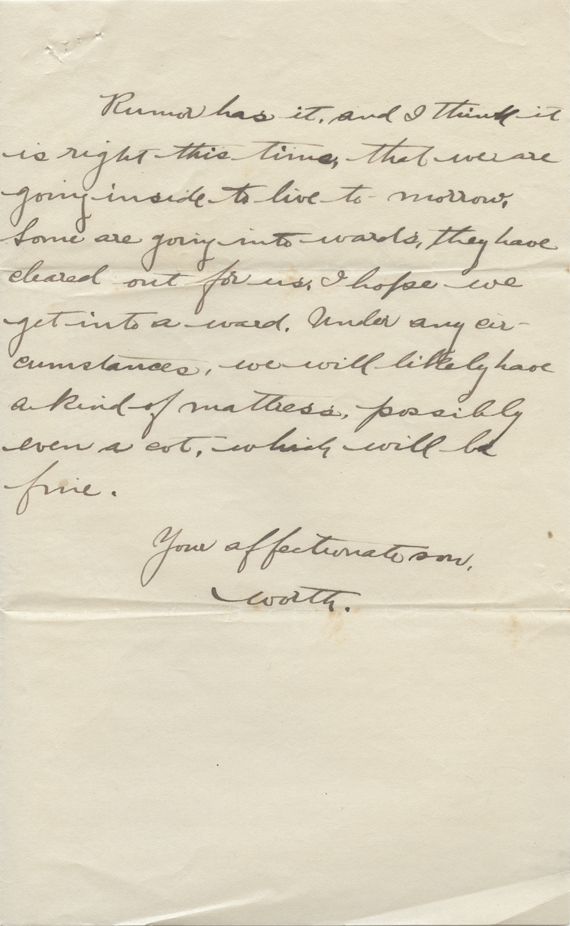 Rumor has it, and I think it
is right this time, that we are
going inside to live to-morrow.
Some are going into wards, they have
cleared out for us. I hope we
get into a ward. Under any cir-
cumstances, we will likely have
a kind of mattress, possibly
even a cot, which will be
fine.
Your affectionate son,
Worth.